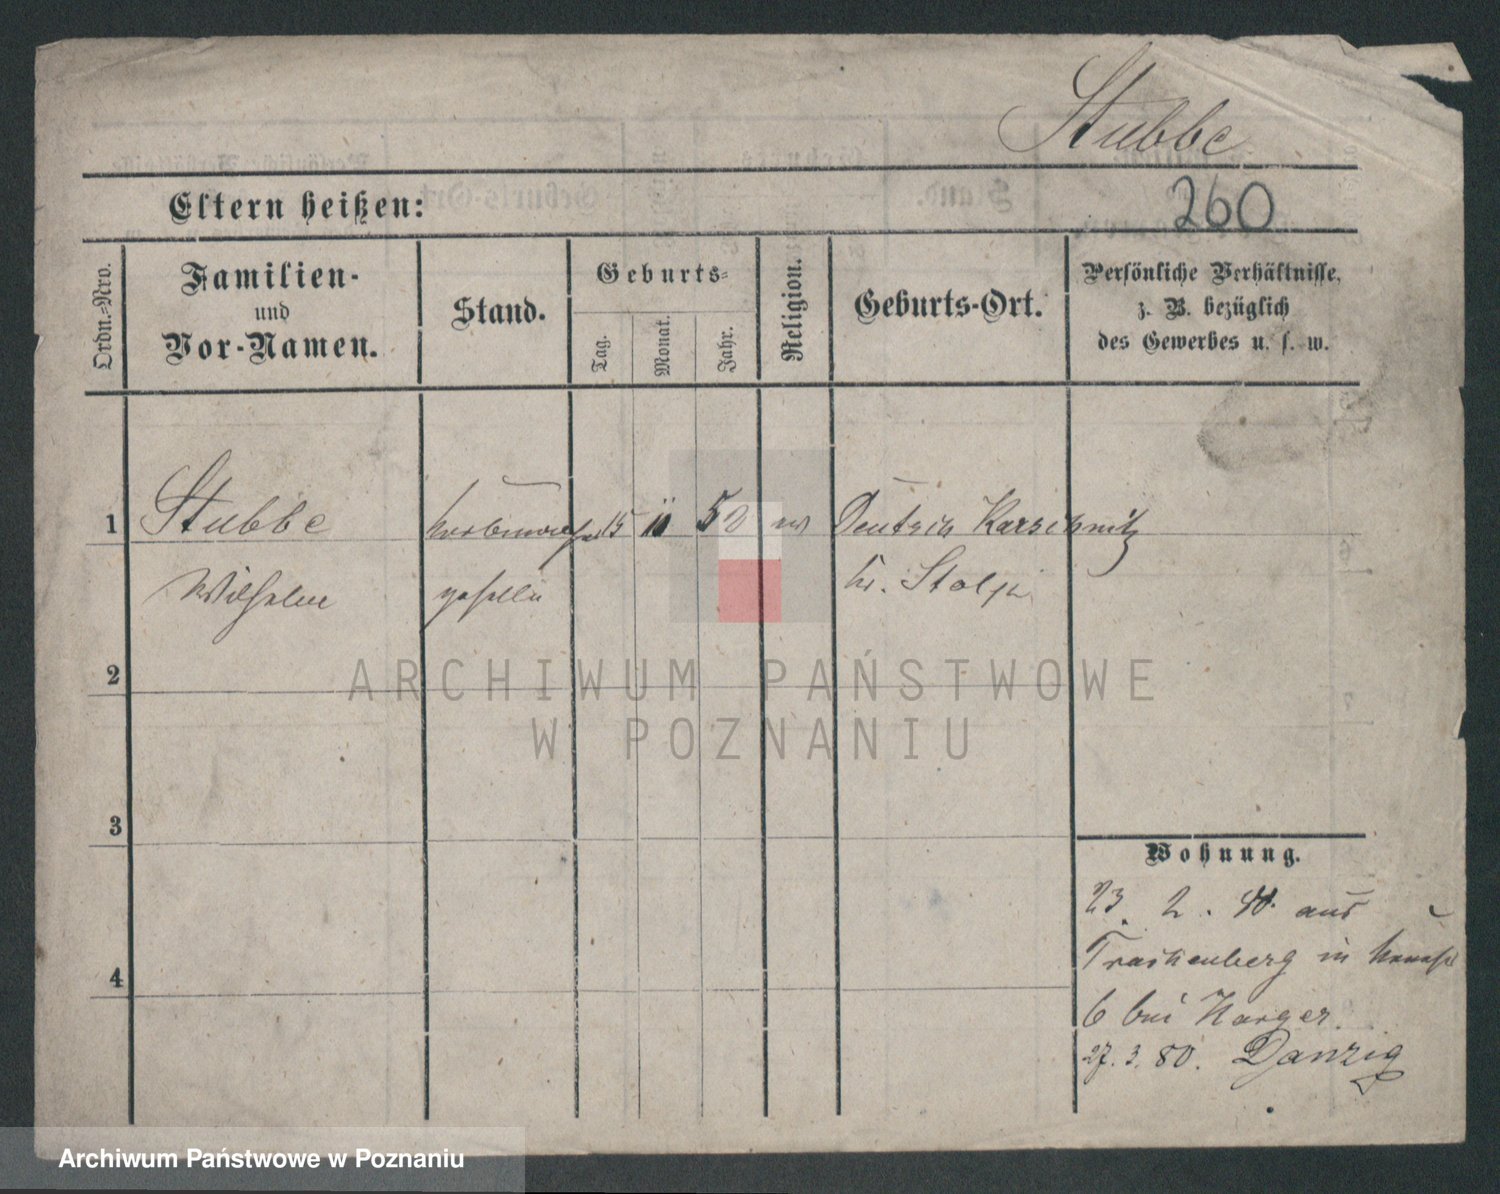 Stubbe
Eltern heißen:
260
Ordn.-Nro.
Familien-
und
Vor-Namen.
Stand.
Geburts-
Tag.
Monat.
Jahr.
Religion.
Geburts-Ort.
Persönliche Verhältnisse,
z. B. bezüglich
des Gewerbes u. s. w.
1
Stubbe
15
50
ev
Deutsch Karschnitz
Wilhelm
geselle
Kr. Stolp
2
ARCHIWUM PAŃSTWOWE
W POZNANIU
3
Wohnung.
23. 2. 80. aus
Trachenberg in
4
6 bei Karger
27. 3. 80. Danzig
Archiwum Państwowe w Poznaniu